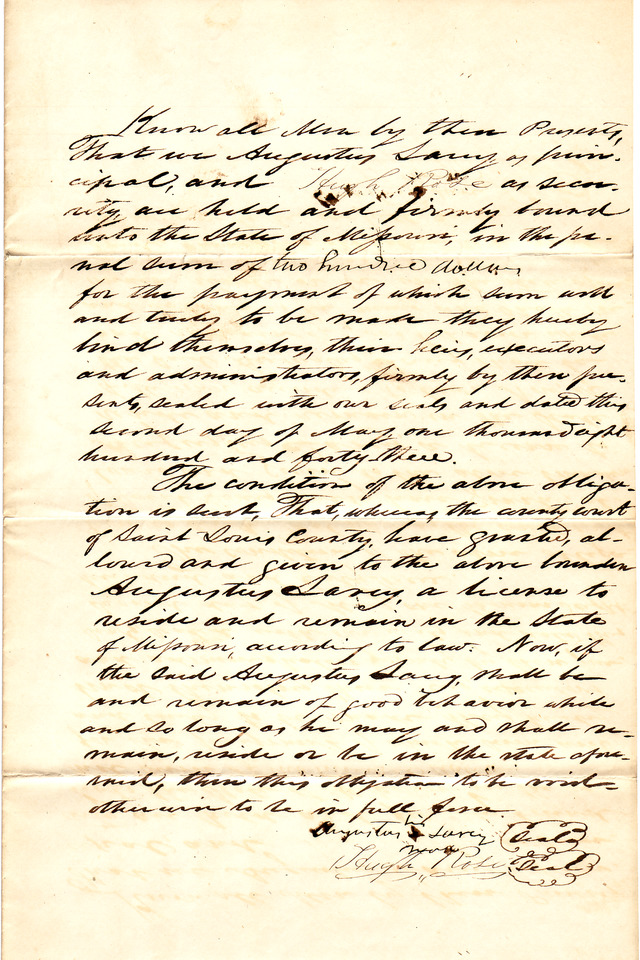 Know all Men by these Presents,
That we Augustus Lacey as prin-
cipal, and Hugh Rose as secu-
rity, are held and firmly bound
unto the State of Missouri, in the pe-
nal sum of two hundred dollars
for the payment of which sum well
and truly to be made they hereby
bind themselves, their heirs, executors
and administrators, firmly by these pre-
sents, sealed with our seals and dated this
second day of May one thousand eight
hundred and forty three.
The condition of the above obliga-
tion is such, That, whereas, the county court
of Saint Louis County, have granted, al-
lowed and given to the above bounden
Augustus Lacey, a license to
reside and remain in the State
of Missouri, according to law. Now, if
the said Augustus Lacey, shall be
and remain of good behavior while
and so long as he may and shall re-
main, reside or be in the state afore-
said, then this obligation to be void
otherwise to be in full force.
his
Augustus X Lacey Seal
mark
Hugh Rose Seal